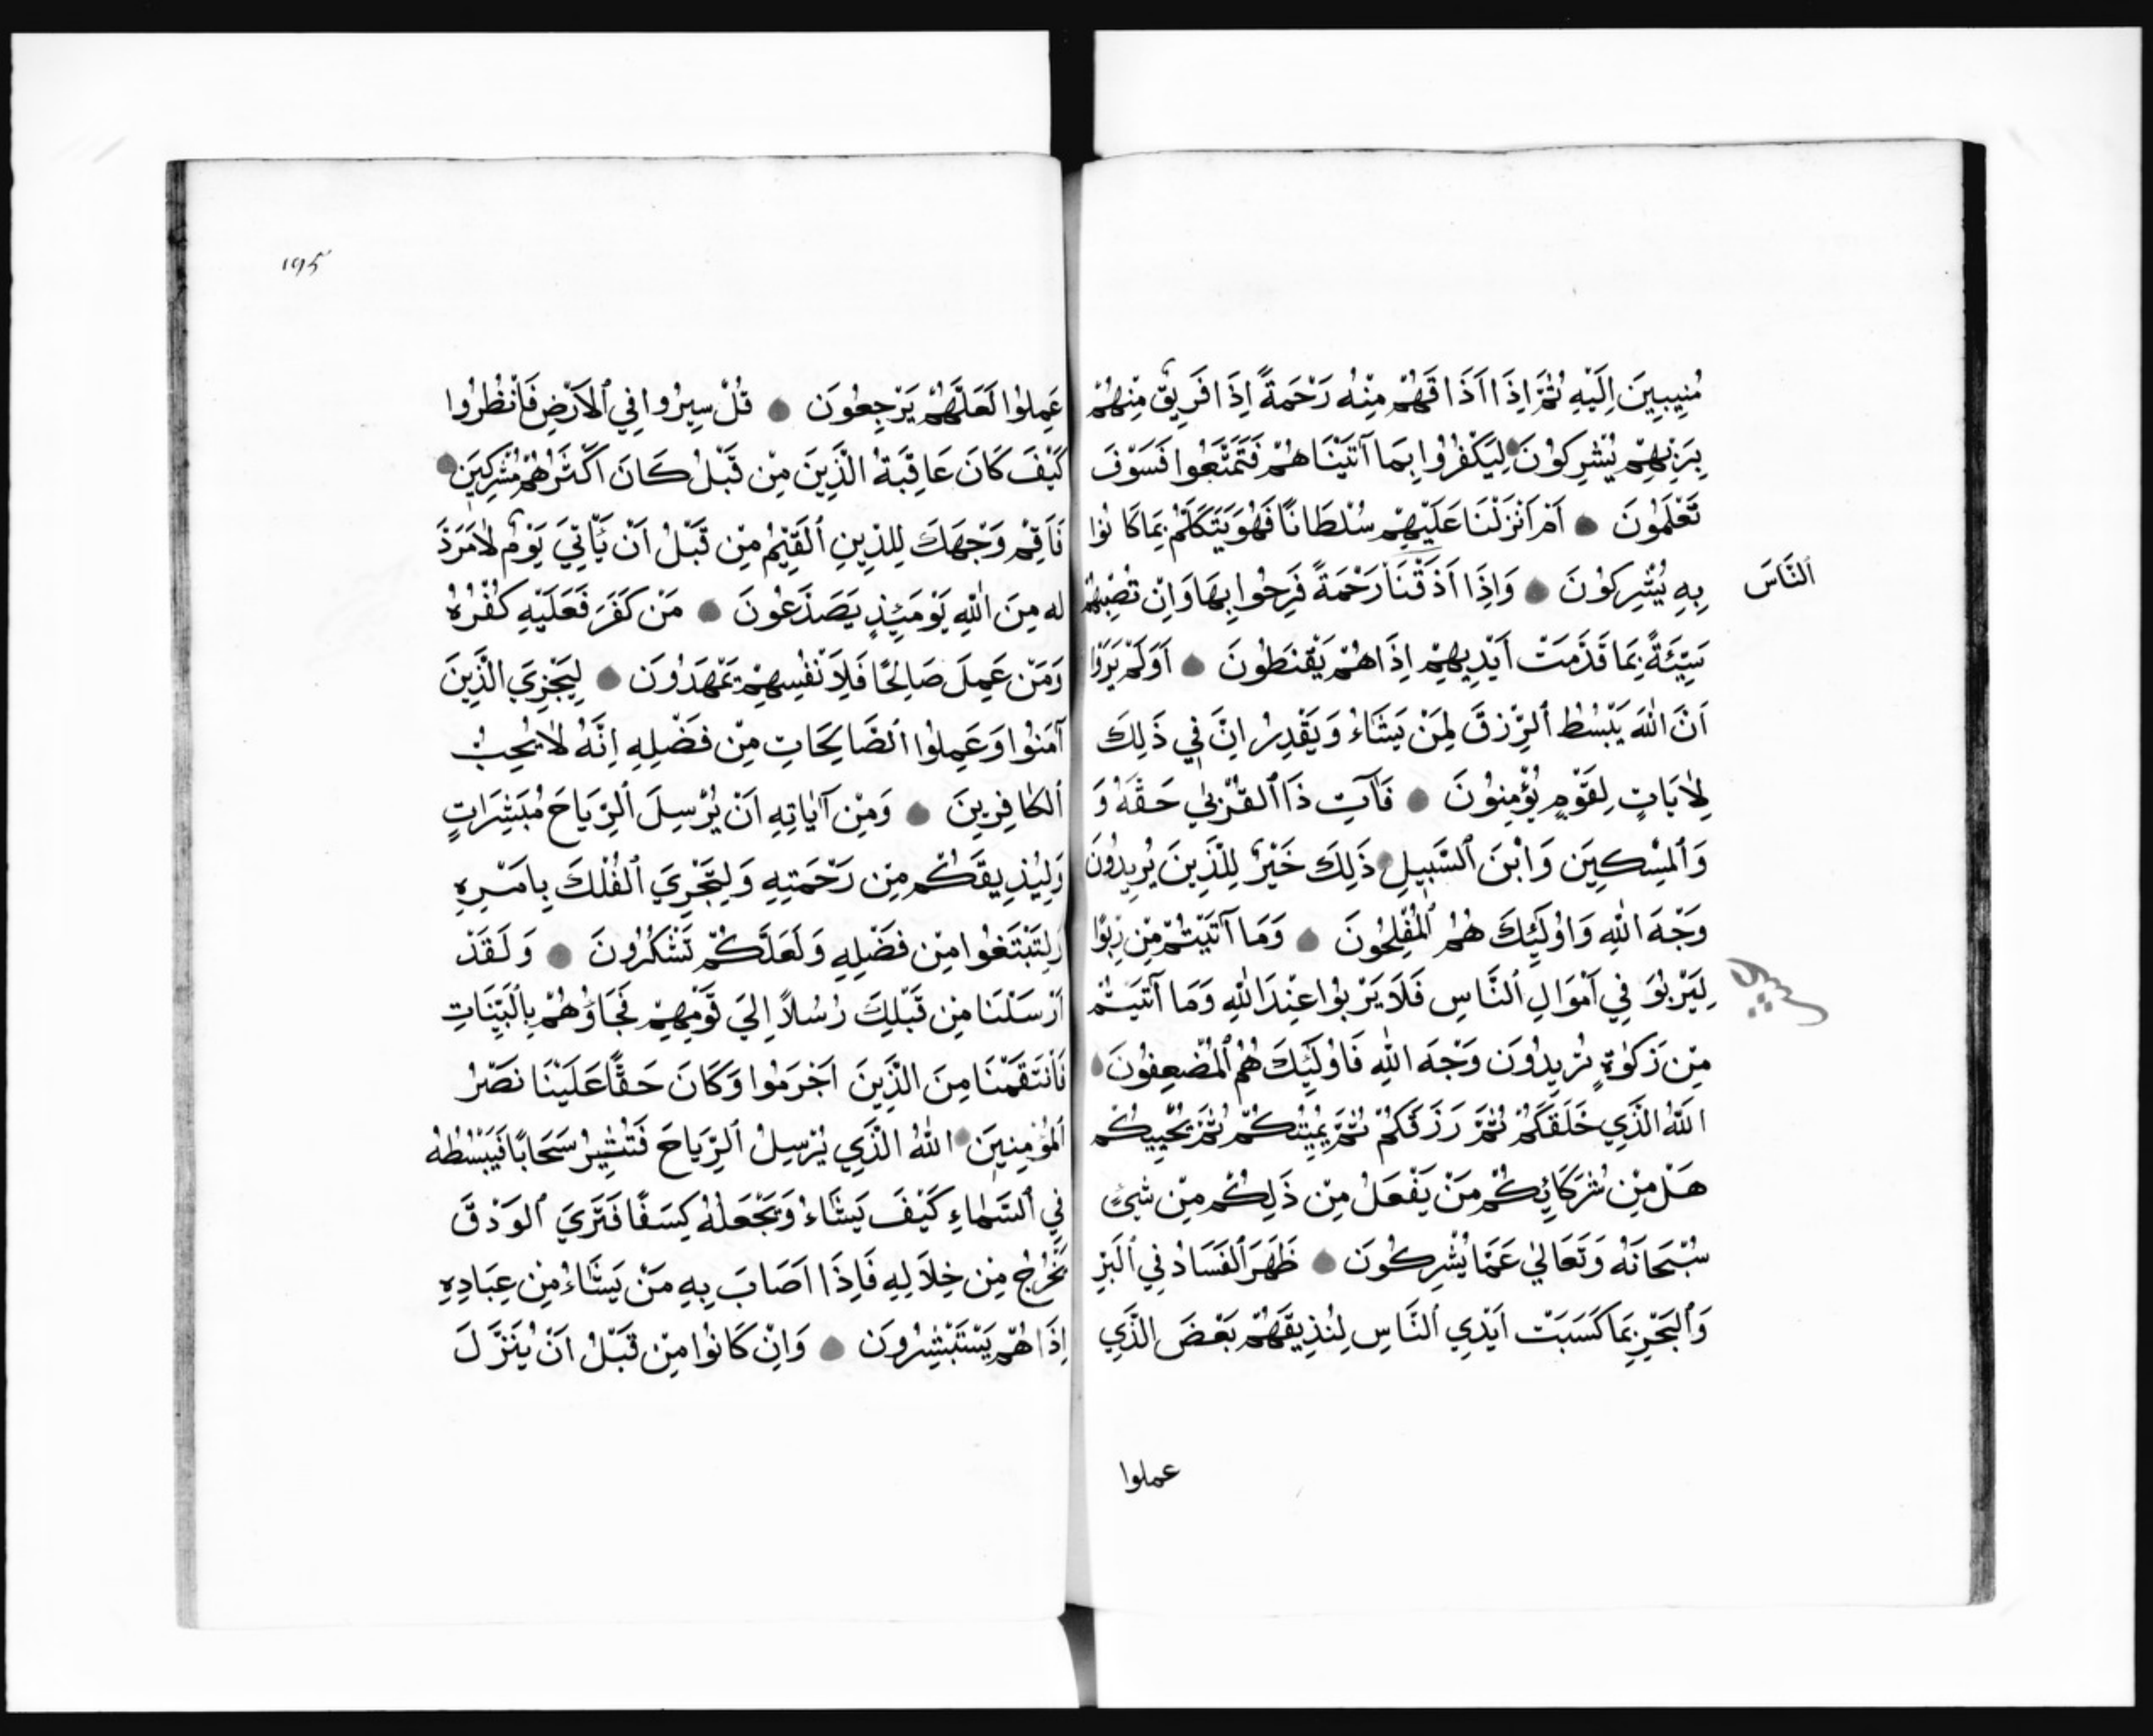 مُنِيبِينَ اِلَيْهِ ثُمَّ اِذَا اَذَاقَهُمْ مِنْهُ رَحْمَةً اِذَا فَرِيقٌ مِنْهُمْ
بِرَبِّهِمْ يُشْرِكُونَ لِيَكْفُرُوا بِمَا آتَيْنَاهُمْ فَتَمَتَّعُوا فَسَوْفَ
تَعْلَمُونَ اَمْ اَنْزَلْنَا عَلَيْهِمْ سُلْطَانًا فَهُوَ يَتَكَلَّمُ بِمَا كَانُوا
بِهِ يُشْرِكُونَ وَاِذَا اَذَقْنَا رَحْمَةً فَرِحُوا بِهَا وَاِنْ تُصِبْهُمْ
اَلنَّاسَ
سَيِّئَةٌ بِمَا قَدَّمَتْ اَيْدِيهِمْ اِذَا هُمْ يَقْنَطُونَ اَوَلَمْ يَرَوْا
اَنَّ اللّٰهَ يَبْسُطُ اَلرِّزْقَ لِمَنْ يَشَاءُ وَيَقْدِرُ اِنَّ فِي ذَلِكَ
لَاٰيَاتٍ لِقَوْمٍ يُؤْمِنُونَ فَآتِ ذَا اَلْقُرْبٰى حَقَّهُ وَ
وَاَلْمِسْكِينَ وَابْنَ اَلسَّبِيلِ ذَلِكَ خَيْرٌ لِلَّذِينَ يُرِيدُونَ
وَجْهَ اللّٰهِ وَاُولَئِكَ هُمُ اَلْمُفْلِحُونَ وَمَا آتَيْتُمْ مِنْ رِبًوا
لِيَرْبُوَ فِي اَمْوَالِ اَلنَّاسِ فَلَا يَرْبُوا عِنْدَ اللّٰهِ وَمَا آتَيْتُمْ
مِنْ زَكٰوةٍ تُرِيدُونَ وَجْهَ اللّٰهِ فَاُولَئِكَ هُمُ اَلْمُضْعِفُونَ
اَللّٰهُ الَّذِي خَلَقَكُمْ ثُمَّ رَزَقَكُمْ ثُمَّ يُمِيتُكُمْ ثُمَّ يُحْيِيكُمْ
هَلْ مِنْ شُرَكَائِكُمْ مَنْ يَفْعَلُ مِنْ ذَلِكُمْ مِنْ شَيْئٍ
سُبْحَانَهُ وَتَعَالٰي عَمَّا يُشْرِكُونَ ظَهَرَ اَلْفَسَادُ فِي اَلْبَرِّ
وَاَلْبَحْرِ بِمَا كَسَبَتْ اَيْدِي اَلنَّاسِ لِنُذِيقَهُمْ بَعْضَ الَّذِي
عملوا
١٩٥
عَمِلُوا لَعَلَّهُمْ يَرْجِعُونَ قُلْ سِيرُوا فِي اَلْاَرْضِ فَاَنْظُرُوا
كَيْفَ كَانَ عَاقِبَةُ الَّذِينَ مِنْ قَبْلُ كَانَ اَكْثَرُهُمْ مُشْرِكِينَ
فَاَقِمْ وَجْهَكَ لِلدِّينِ اَلْقَيِّمِ مِنْ قَبْلُ اَنْ يَأْتِيَ يَوْمٌ لَامَرَدَّ
لَهُ مِنَ اللّٰهِ يَوْمَئِذٍ يَصَّدَّعُونَ مَنْ كَفَرَ فَعَلَيْهِ كُفْرُهُ
وَمَنْ عَمِلَ صَالِحًا فَلِاَنْفُسِهِمْ يَمْهَدُونَ لِيَجْزِيَ الَّذِينَ
آمَنُوا وَعَمِلُوا اَلصَّالِحَاتِ مِنْ فَضْلِهِ اِنَّهُ لَا يُحِبُّ
اَلْكَافِرِينَ وَمِنْ آيَاتِهِ اَنْ يُرْسِلَ اَلرِّيَاحَ مُبَشِّرَاتٍ
وَلِيُذِيقَكُمْ مِنْ رَحْمَتِهِ وَلِتَجْرِيَ اَلْفُلْكَ بِاَمْرِهِ
وَلِتَبْتَغُوا مِنْ فَضْلِهِ وَلَعَلَّكُمْ تَشْكُرُونَ وَلَقَدْ
اَرْسَلْنَا مِنْ قَبْلِكَ رُسُلاً اِلَيٰ قَوْمِهِمْ فَجَاؤُهُمْ بِالْبَيِّنَاتِ
فَاَنْتَقَمْنَا مِنَ الَّذِينَ اَجْرَمُوا وَكَانَ حَقًّا عَلَيْنَا نَصْرُ
اَلْمُؤْمِنِينَ اَللّٰهُ الَّذِي يُرْسِلُ اَلرِّيَاحَ فَتُثِيرُ سَحَابًا فَيَبْسُطُهُ
فِي اَلسَّمَاءِ كَيْفَ يَشَاءُ وَيَجْعَلُهُ كِسَفًا فَتَرَيَ اَلْوَدْقَ
يَخْرُجُ مِنْ خِلَالِهِ فَاِذَا اَصَابَ بِهِ مَنْ يَشَاءُ مِنْ عِبَادِهِ
اِذَا هُمْ يَسْتَبْشِرُونَ وَاِنْ كَانُوا مِنْ قَبْلُ اَنْ يُنَزَّلَ